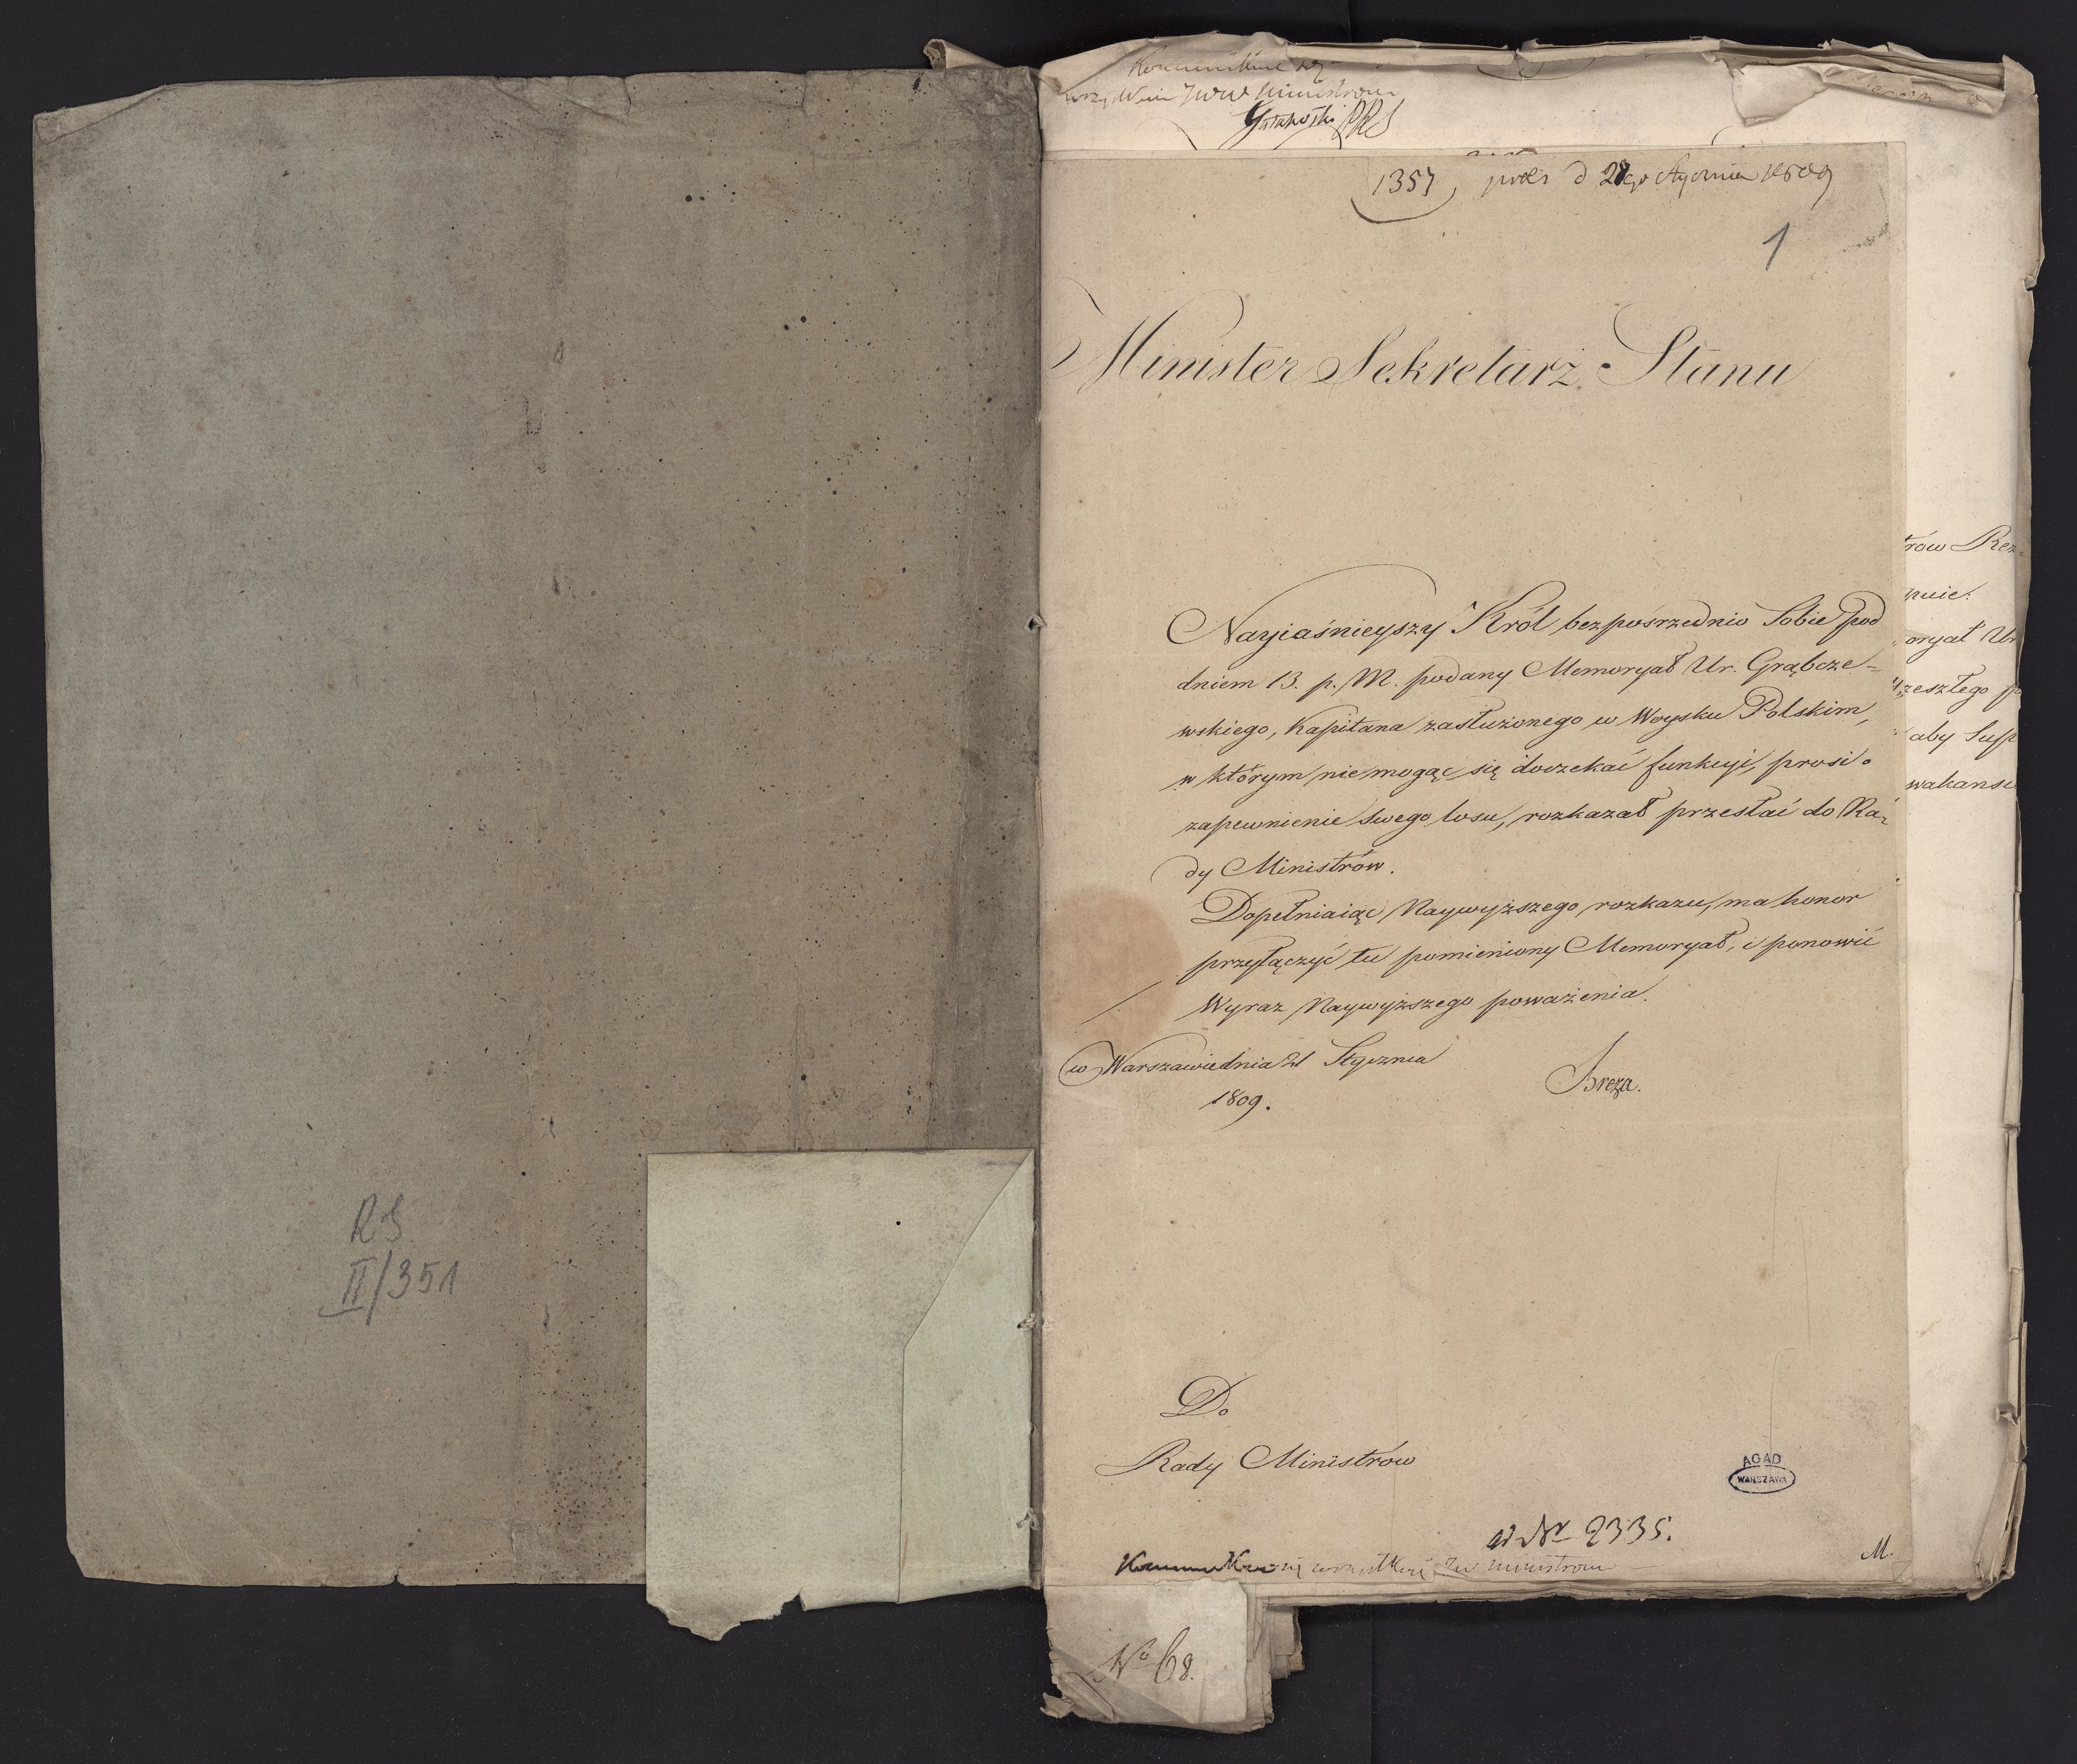 RS
II/351
Ministrow
1357, 1809
1
Minister Sekretarz Stanu
Nayiaśnieyszy Król bezpośrzednio Sobie pod
dniem 13. p. M. podany Memoryał Ur. Grąbcze-
wskiego, Kapitana zasłużonego w Woysku Polskim,
w którym nie mogąc się doczekać funkcyi, prosi o
zapewnienie swego losu, rozkazał przesłać do Ra-
dy Ministrów.
Dopełniaiąc Naywyższego rozkazu, ma honor
przyłączyć tu pomieniony Memoryał, i ponowić
Wyraz Naywyższego poważenia.
w Warszawie dnia 21 Stycznia
1809.
Breza.
Do
Rady Ministrów
AGAD
WARSZAWA
ad Nr 2335.
ministrom
M.
No 68.
trów
oryał Ur
zeszłego
aby